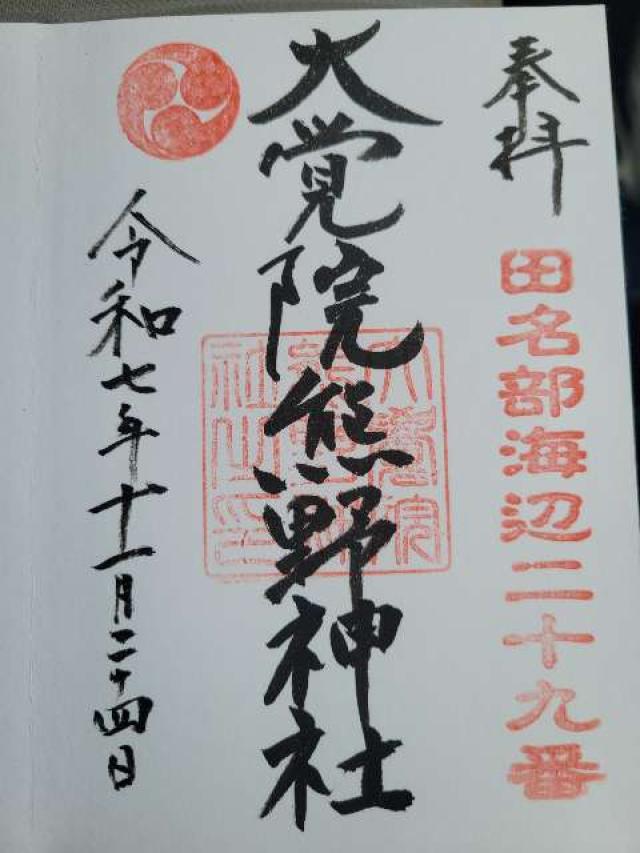 奉拝
田名部海辺二十九番
大覚院熊野神社
大覚院熊野神社之印
令和七年十一月二十四日